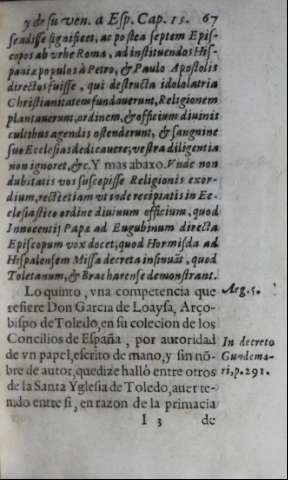 y de su ven. a Esp. Cap. 15. 67
se adisse significet, ac postea septem Epis-
copos ab vrbe Roma, ad instituendos His-
paniæ populos à Petro, & Paulo Apostolis
directos fuisse, qui destructa idololatria
Christianitatem fundauerunt, Religionem
plantauerunt, ordinem, & officium diuinis
cultibus agendis ostenderunt, & sanguine
suo Ecclesias dedicauere; vestra diligentia
non ignoret, &c. Y mas abaxo. Vnde non
dubitatis vos suscepisse Religionis exor-
dium, rectè etiam vt inde recipiatis in Ec-
clesiastico ordine diuinum officium, quod
Innocentij Papæ ad Eugubinum directa
Episcopum vox docet, quod Hormisda ad
Hispalensem Missa decreta insinuãt, quod
Toletanum, & Bracharense demonstrant.
Lo quinto, vna competencia que
refiere Don Garcia de Loaysa, Arço-
bispo de Toledo, en su colecion de los
Concilios de España, por autoridad
de vn papel, escrito de mano, y sin nõ-
bre de autor, que dize halló entre otros
de la Santa Yglesia de Toledo, auer te-
nido entre si, en razon de la primacia
I 3 de
Arg. 5.
In decreto
Gundema-
ri, p. 291.